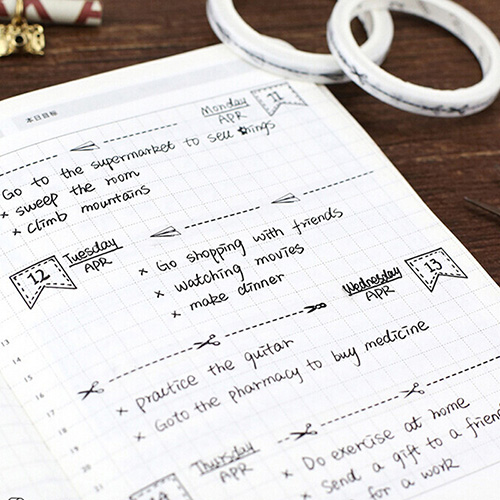 Monday
11
APR
Go to the supermarket to sell things
× sweep the room
× climb mountains
12
Tuesday
APR
× Go shopping with friends
× watching movies
× make dinner
Wednesday
13
APR
× practice the guitar
× Goto the pharmacy to buy medicine
Thursday
APR
× Do exercise at home
× Send a gift to a friend
for a work
13
14
15
16
17
18